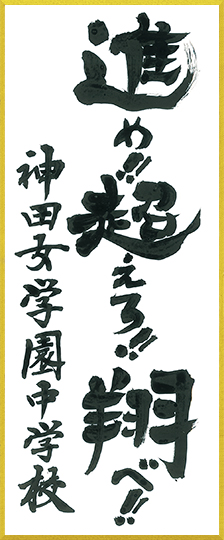 進め!!超えろ!!翔べ!!
神田女学園中学校